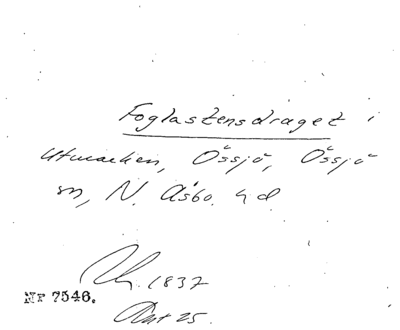 Foglastensdraget i
Utmarken, Össjö, Össjö
sn, N. Åsbo hd
1837
NF 7546.
25.